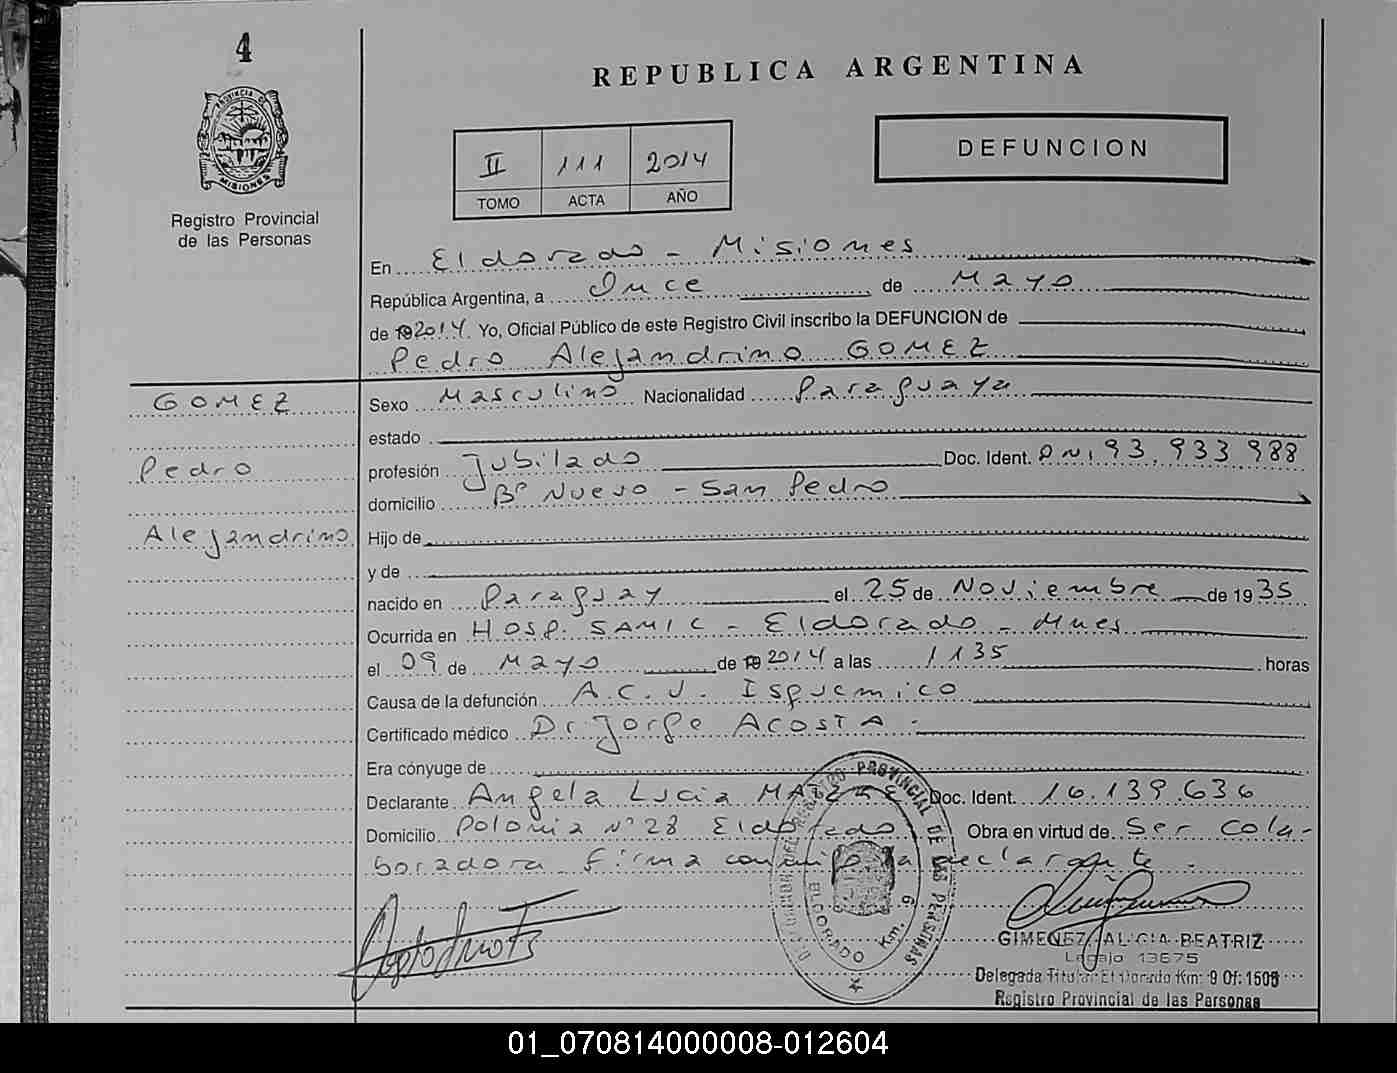 4
PROVINCIA DE
MISIONES
Registro Provincial
de las Personas
REPUBLICA ARGENTINA
II 111 2014
TOMO ACTA AÑO
DEFUNCION
En Eldorado - Misiones
República Argentina, a Once de Mayo
de 2014 Yo, Oficial Público de este Registro Civil inscribo la DEFUNCION de
Pedro Alejandrino GOMEZ
GOMEZ
Pedro
Alejandrino
Sexo Masculino Nacionalidad Paraguaya
estado
profesión Jubilado Doc. Ident. DNI 93.933.988
domicilio Bº Nuevo - San Pedro
Hijo de
y de
nacido en Paraguay el 25 de Noviembre de 1935
Ocurrida en Hosp. SAMIC - Eldorado - Mnes
el 09 de Mayo de 2014 a las 1135 horas
Causa de la defunción A.C.V. Isquemico
Certificado médico Dr Jorge ACOSTA.
Era cónyuge de
Declarante Angela Lucia Doc. Ident. 16.139.636
Domicilio Polonia Nº 28 Eldorado Obra en virtud de Ser cola-
boradora. Firma conmigo la declarante.
REGISTRO PROVINCIAL DE LAS PERSONAS
ELDORADO Km. 9
GIMENEZ, ALICIA BEATRIZ
Legajo 13675
Delegada Titular El Dorado Km: 9 Of: 1506
Registro Provincial de las Personas
01_070814000008-012604